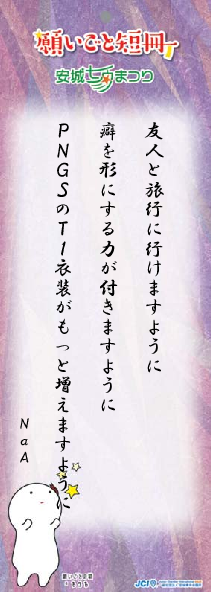 願いごと短冊
安城七夕まつり
友人と旅行に行けますように
癖を形にする力が付きますように
PNGSのT1衣装がもっと増えますように
NaA
願いごと短冊
JCI